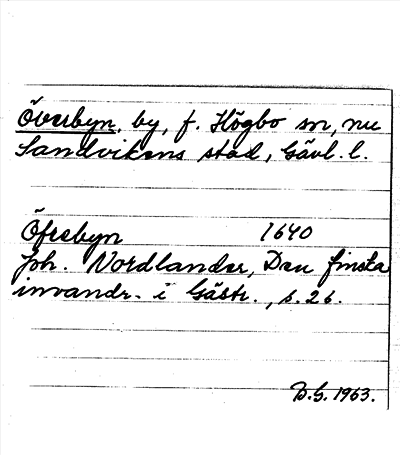 Överbyn, by, f. Högbo sn, nu
Sandvikens stad, Gävl. l.
Öfrebyn 1640
Joh. Nordlander, Den finska
invandr. i Gästr., s. 26.
B.G. 1963.